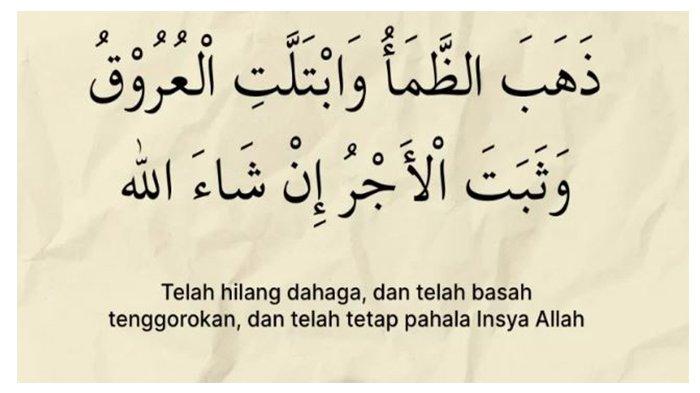 ذَهَبَ الظَّمَأُ وَابْتَلَّتِ الْعُرُوْقُ
وَثَبَتَ الْأَجْرُ إِنْ شَاءَ اللهُ
Telah hilang dahaga, dan telah basah
tenggorokan, dan telah tetap pahala Insya Allah